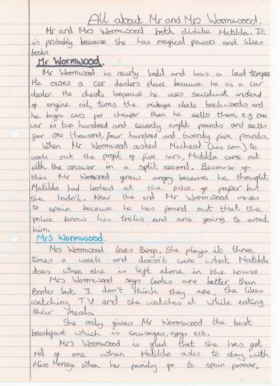 All about Mr and Mrs Wormwood.
Mr and Mrs Wormwood both dislike Matilda. It
is probably because she has magical powers and likes
books.
Mr Wormwood.
Mr Wormwood is nearly bald and has a bad temper
He owns a car dealers place because he is a car
dealer. He cheats because he uses sawdust instead
of engine oil, turns the mileage dials backwards and
he buys cars for cheaper than he sells them e.g one
car is two hundred and seventy eight pounds and sells
for one thousand, four hundred and twenty five pounds.
When Mr Wormwood asked Michael (his son) to
work out the profit of five cars, Matilda came out
with the answer in a split second. Because of
this Mr Wormwood grew angry because he thought
Matilda had looked at the piece of paper but
she hadn't. Now she and Mr Wormwood move
to Spain because he has found out that the
police know his tricks and are going to arrest
him.
Mrs Wormwood.
Mrs Wormwood loves Bingo. She plays it three
times a week and doesn't care what Matilda
does when she is left alone in the house.
Mrs Wormwood says looks are better than
books but I don't think they are. She likes
watching TV and she watches it while eating
their meals.
She only gives Mr Wormwood the best
breakfast which is sausages, eggs etc.
Mrs Wormwood is glad that she has got
rid of one when Matilda asks to stay with
Miss Honey when her family go to Spain forever.